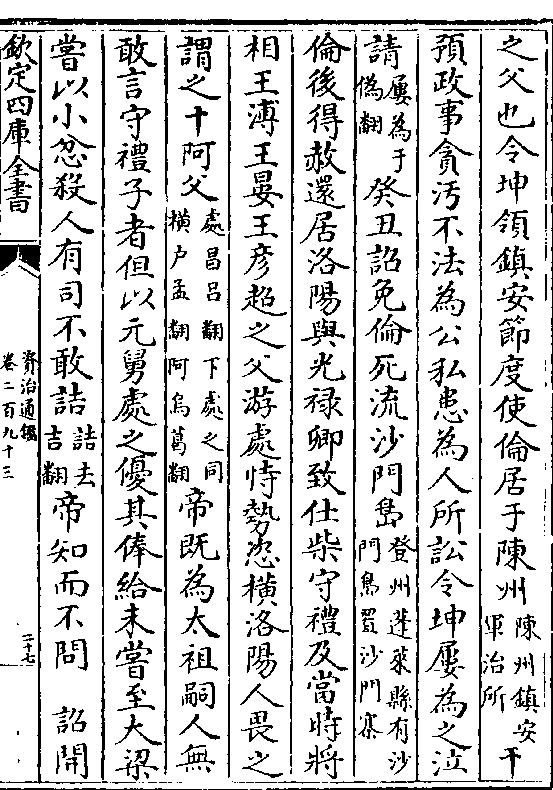 之父也令坤領鎮安節度使倫居于陳州陳州鎮安軍治所干
預政事貪汚不法為公私患為人所訟令坤屢為之泣
請屢為于偽翻癸丑詔免倫死流沙門島登州蓬萊縣有沙門島置沙門寨
倫後得赦還居洛陽與光禄卿致仕柴守禮及當時將
相王溥王晏王彦超之父游處恃勢恣橫洛陽人畏之
謂之十阿父處昌吕翻下處之同橫户孟翻阿烏葛翻帝既為太祖嗣人無
敢言守禮子者但以元舅處之優其俸給未嘗至大梁
嘗以小忿殺人有司不敢詰詰去吉翻帝知而不問 詔開
欽定四庫全書
資治通鑑
卷二百九十三
二十七